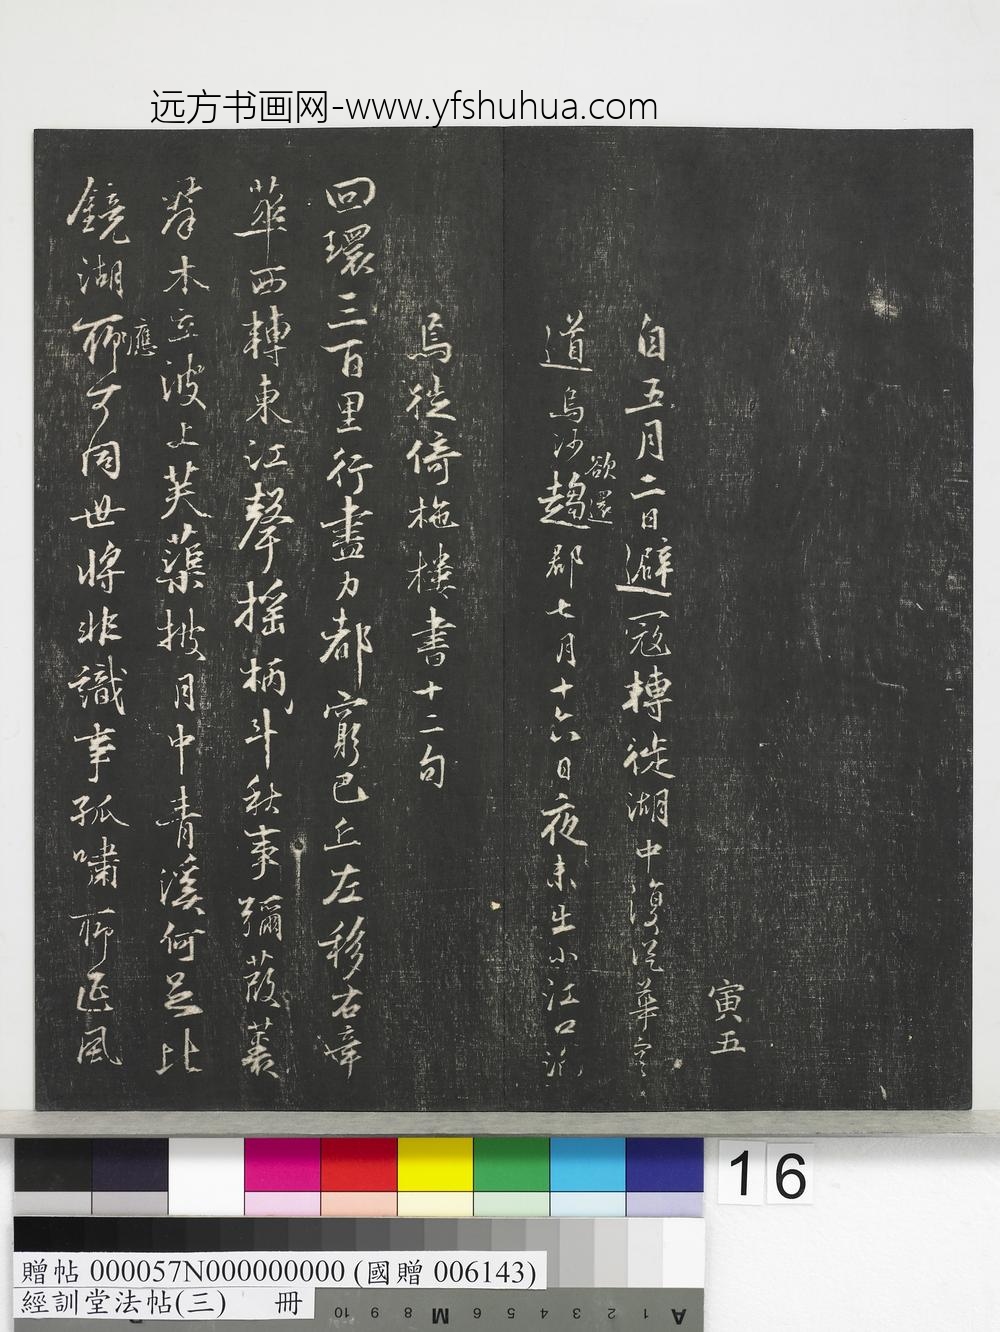 远方书画网-www.yfshuhua.com
寅五
自五月二日避寇轉徙湖中復從華容
道烏沙欲還趨郡七月十六日夜未生小江口泊
焉徙倚柂樓書十二句
回環三百里行盡力都窮巴丘左移右章
華西轉東江聲搖柄斗秋事彌葭
莽木立波上芙蕖披月中青溪何足比
鏡湖聊應可同世將非識事孤嘯聊延風
16
贈帖 000057N000000000 (國贈 006143)
經訓堂法帖(三) 冊
A 1 2 3 4 5 6 M 8 9 10